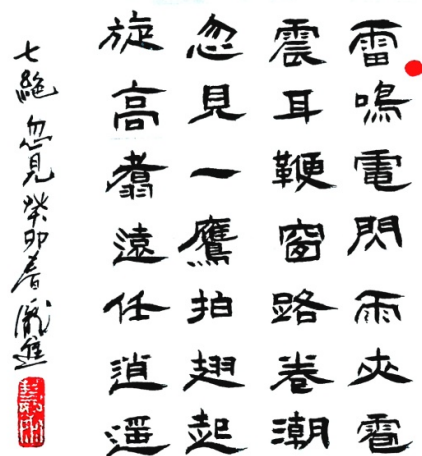 雷鳴電閃雨夾雹
震耳鞭窗路卷潮
忽見一鷹拍翅起
旋高翥遠任逍遥
七絶 忽見 癸卯春 進